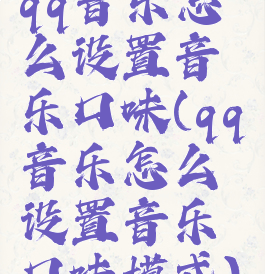 qq音乐怎
么设置音
乐口味(qq
音乐怎么
设置音乐
口味模式)